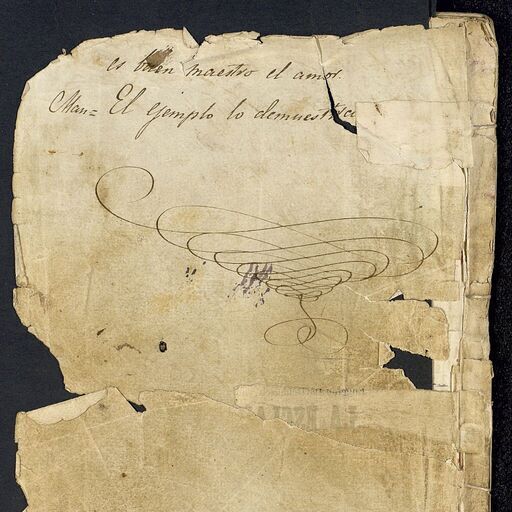 es buen maestro el amor.
Man= El ejemplo lo demuestra